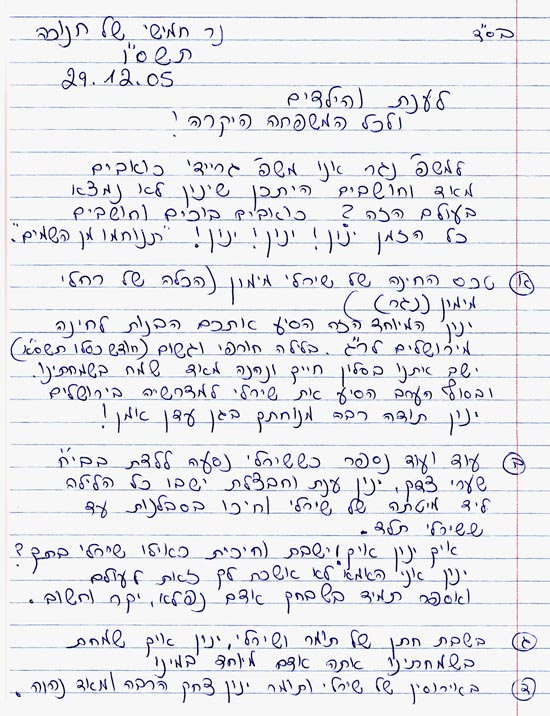 בס"ד
נר חמישי של חנוכה
תשס"ו
29.12.05
לענת והילדים
ולכל המשפחה היקרה!
למשפ' נגר אנו משפ' גריידי כואבים
מאד וחושבים היתכן שינין לא נמצא
בעולם הזה? כואבים בוכים וחושבים
כל הזמן ינין! ינין! ינין! "תנוחמו מן השמים".
(א) טכס החינה של שירלי מימון (הכלה של רחלי
מימון (נגר))
ינין המיוחד הזה הסיע אתכם הבנות לחינה
מירושלים לר"ג. בלילה חורפי וגשום (חודש כסלו תשס"א)
ישב איתנו בסלון חייך ונהנה מאוד שמח בשמחתינו.
ובסוף הערב הסיע את שירלי למדרשיה בירושלים
ינין תודה רבה מנוחתך בגן עדן אמן!
(ב) עוד ועוד נספר כששירלי נסעה ללדת בבי"ח
שערי צדק, ינין ענת וחבצלת ישבו כל הלילה
ליד מיטתה של שירלי וחיכו בסבלנות עד
ששירלי תלד.
איך ינין איך! ישבת וחיכית כאילו שירלי בתך?
ינין אני האמא לא אשכח לך זאת לעולם
ואספר תמיד בשבחך אדם נפלא, יקר וחשוב.
(ג) בשבת חתן של תומר ושירלי, ינין איך שמחת
בשמחתינו אתה אדם מיוחד במינו
(ד) באירוסין של שירלי ותומר ינין צחק הרבה ומאוד נהנה.